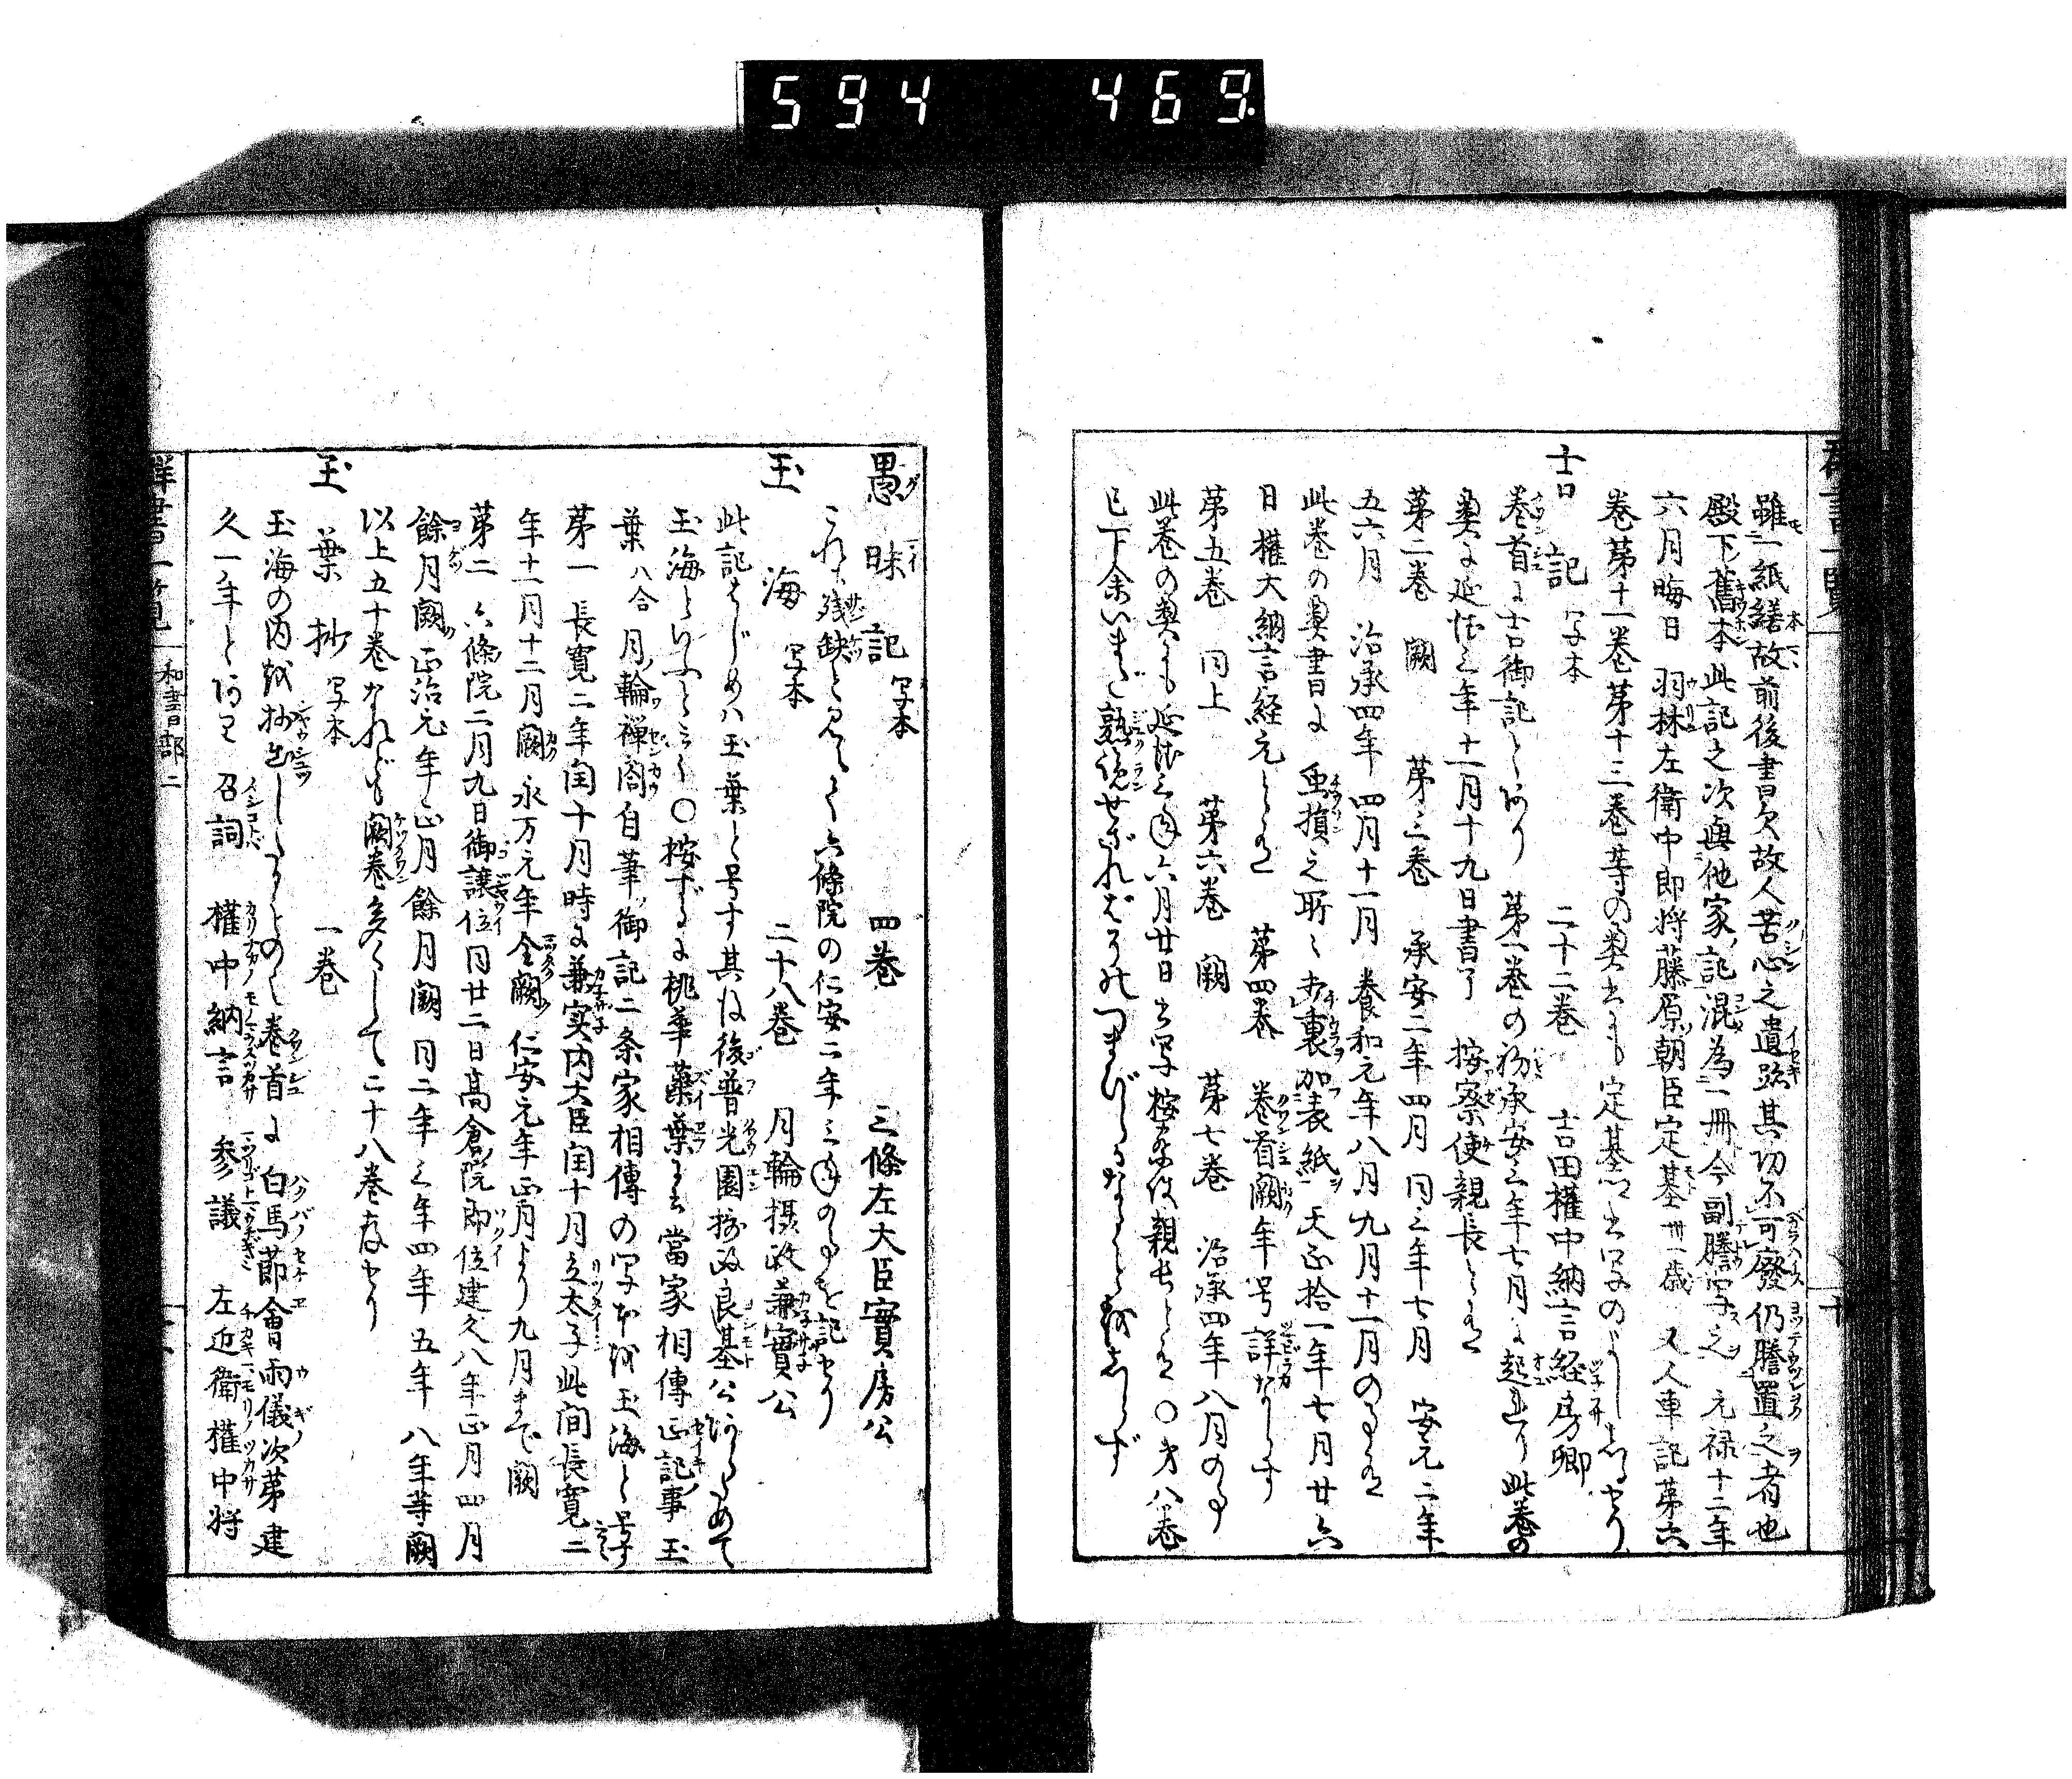 594 469
群書一覧
雖一紙繕故前後書欠故人苦心之遺跡其功不可廢仍謄置之者也
殿下舊本此記之次與他家記混為一冊今副謄写之 元禄十二年
六月晦日 羽林左衛中郎将藤原朝臣定基卅一歳 又人車記第六
巻第十一巻第十三巻等の奥書にも定基卿書写のよししるせり
吉記 写本 二十二巻 吉田権中納言経房卿
巻首に吉御記とあり 第一巻の初承安三年七月に起れり此巻の
奥に延徳三年十一月十九日書了 按察使親長とあり
第二巻 闕 第三巻 承安二年四月 同三年七月 安元二年
五六月 治承四年四月十一月 養和元年八月九月十一月の事有
此巻の奥書に 虫損之所々 裏加表紙 天正拾一年七月廿六
日 権大納言経元とあり 第四巻 巻首闕年号詳ならす
第五巻 同上 第六巻 闕 第七巻 治承四年八月の事
此巻の奥にも延徳三年六月廿日書写 按察使親長とあり〇第八巻
已下余いまだ熟覧せざればそのつまびらかなることをしらず
愚昧記 写本 四巻 三條左大臣實房公
これは残缺と見えて六條院の仁安二年三年の事を記せり
玉海 写本 二十八巻 月輪摂政兼實公
此記はじめハ玉葉と号す其後後普光園摂政良基公あらためて
玉海といふといふ〇按ずるに桃華蘂葉に云當家相傳正記事玉
葉八合 月輪禅閤自筆御記二条家相傳の写本を玉海と号すと云々
第一 長寛二年閏十月時に兼実内大臣閏十月立太子此間長寛二
年十一月十二月闕 永万元年全闕 仁安元年正月より九月まで闕
第二 六條院二月九日御譲位同廿二日高倉院即位建久八年正月四月
餘月闕 正治元年正月餘月闕 同二年三年四年五年八年等闕
以上五十巻なれども闕巻多くして二十八巻存せり
玉葉抄 写本 一巻
玉海の内を抄出したるもの也巻首に 白馬節會雨儀次第建
久一年とあり 召詞 権中納言 参議 左近衛権中将
群書一覧 和書部二